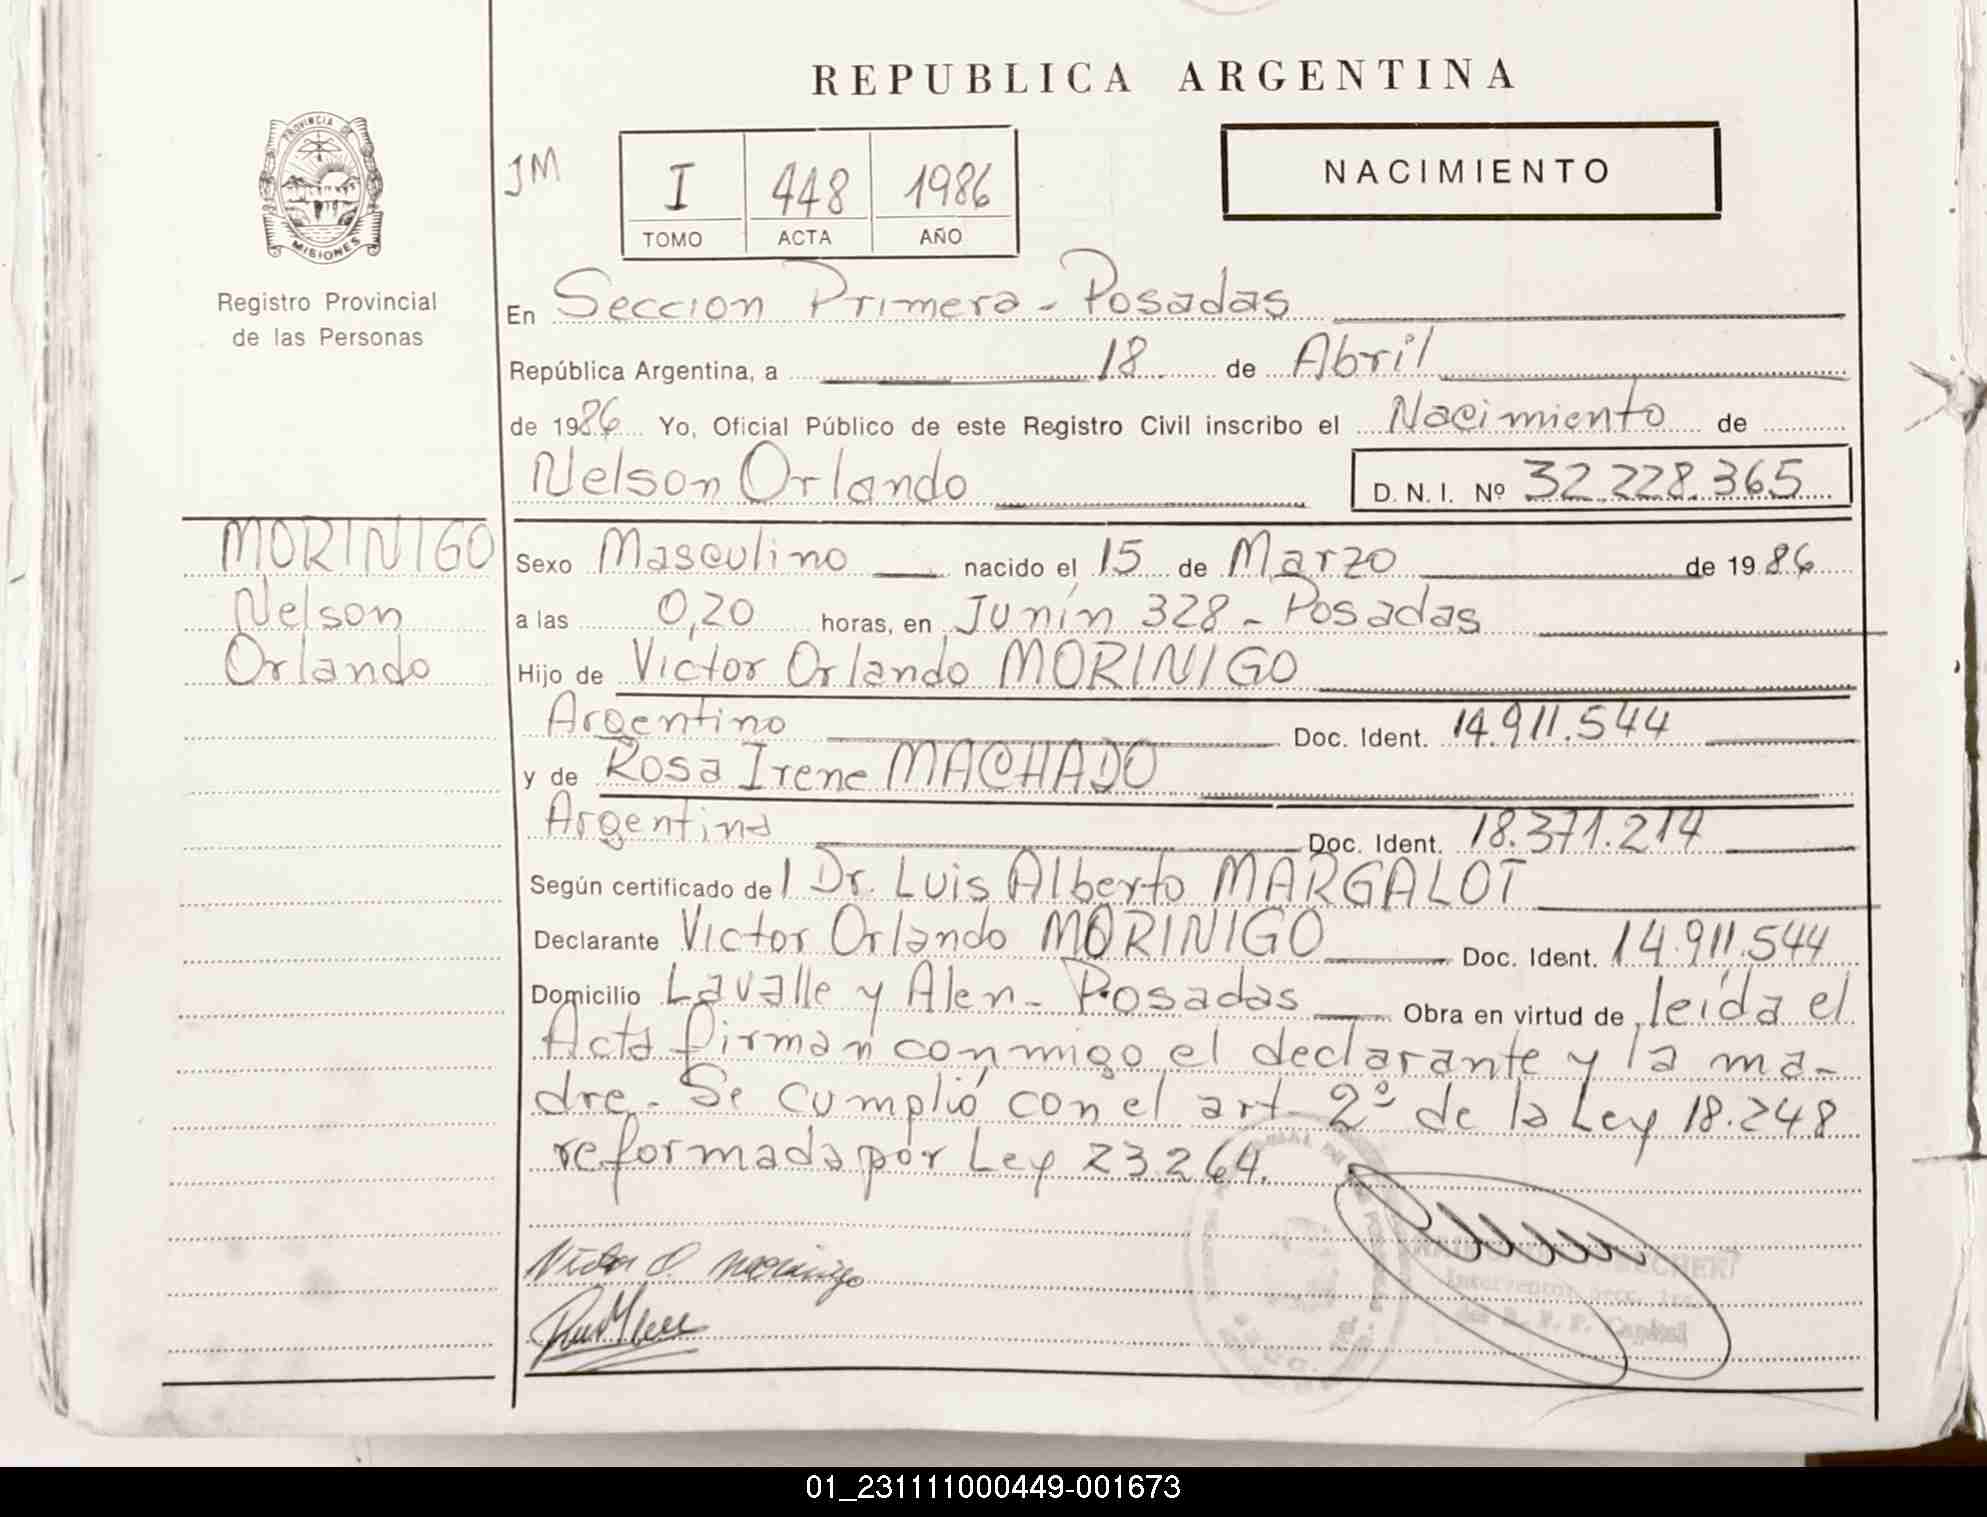 REPUBLICA ARGENTINA
PROVINCIA DE
MISIONES
Registro Provincial
de las Personas
JM
I 448 1986
TOMO ACTA AÑO
NACIMIENTO
En Seccion Primera - Posadas
República Argentina, a 18 de Abril
de 1986 Yo, Oficial Público de este Registro Civil inscribo el Nacimiento de
Nelson Orlando D.N.I. Nº 32.228.365
MORINIGO
Nelson
Orlando
Sexo Masculino nacido el 15 de Marzo de 1986
a las 0,20 horas, en Junín 328 - Posadas
Hijo de Victor Orlando MORINIGO
Argentino Doc. Ident. 14.911.544
y de Rosa Irene MACHADO
Argentina Doc. Ident. 18.371.214
Según certificado del Dr. Luis Alberto MARGALOT
Declarante Victor Orlando MORINIGO Doc. Ident. 14.911.544
Domicilio Lavalle y Alen - Posadas Obra en virtud de leída el
Acta firman conmigo el declarante y la ma-
dre. Se cumplió con el art. 2º de la Ley 18.248
reformada por Ley 23264.
Victor O. Morinigo
Interventor Secc. 1ra.
del R. P. P. Capital
01_231111000449-001673